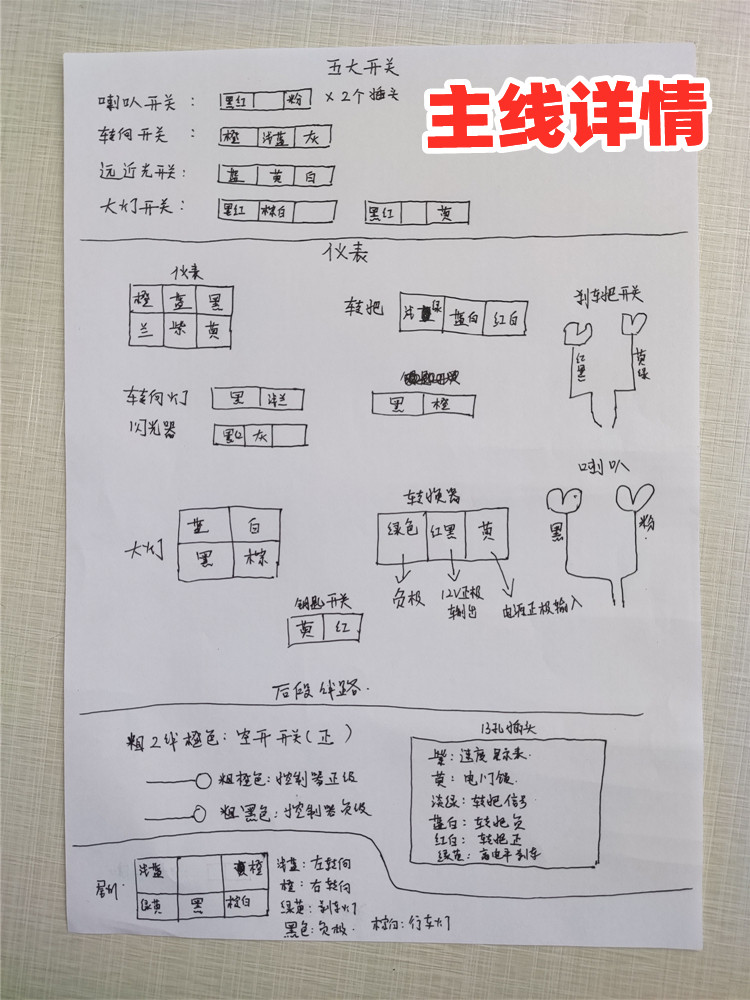 主线详情
五大开关
喇叭开关： 黑红 粉 ×2个插头
转向开关： 橙 浅蓝 灰
远近光开关： 蓝 黄 白
大灯开关： 黑红 棕白 黑红 黄
仪表
仪表
橙 蓝 黑
兰 紫 黄
转把 浅绿 蓝白 红白
刹车把开关
红黑 黄绿
转向灯 黑 浅兰
黑 橙
闪光器 灰
喇叭
黑 粉
大灯
蓝 白
黑 棕
转换器
绿色 红黑 黄
负极 12V正极输出 电源正极输入
钥匙开关
黄 红
后段线路.
粗2线橙色：空开开关(正)
粗橙色：控制器正级
粗黑色：控制器负级
13孔插头
紫：速度显示表.
黄：电门锁
淡绿：转把信号
蓝白：转把负
红白：转把正
绿黄：高电平刹车
尾灯.
浅蓝 橙
绿黄 黑 棕白
浅蓝：左转向
橙：右转向
绿黄：刹车灯
黑色：负极. 棕白：行车灯